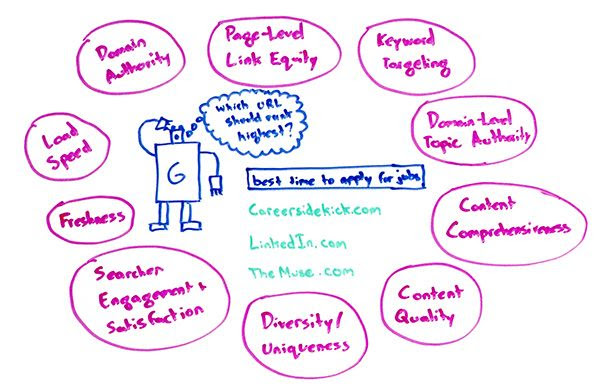 Domain
Authority
Page-Level
Link Equity
Keyword
Targeting
Domain-Level
Topic Authority
Content
Comprehensiveness
Content
Quality
Diversity/
Uniqueness
Searcher
Engagement +
Satisfaction
Freshness
Load
Speed
Which URL
should rank
highest?
G
best time to apply for jobs
Careersidekick.com
LinkedIn.com
The Muse.com